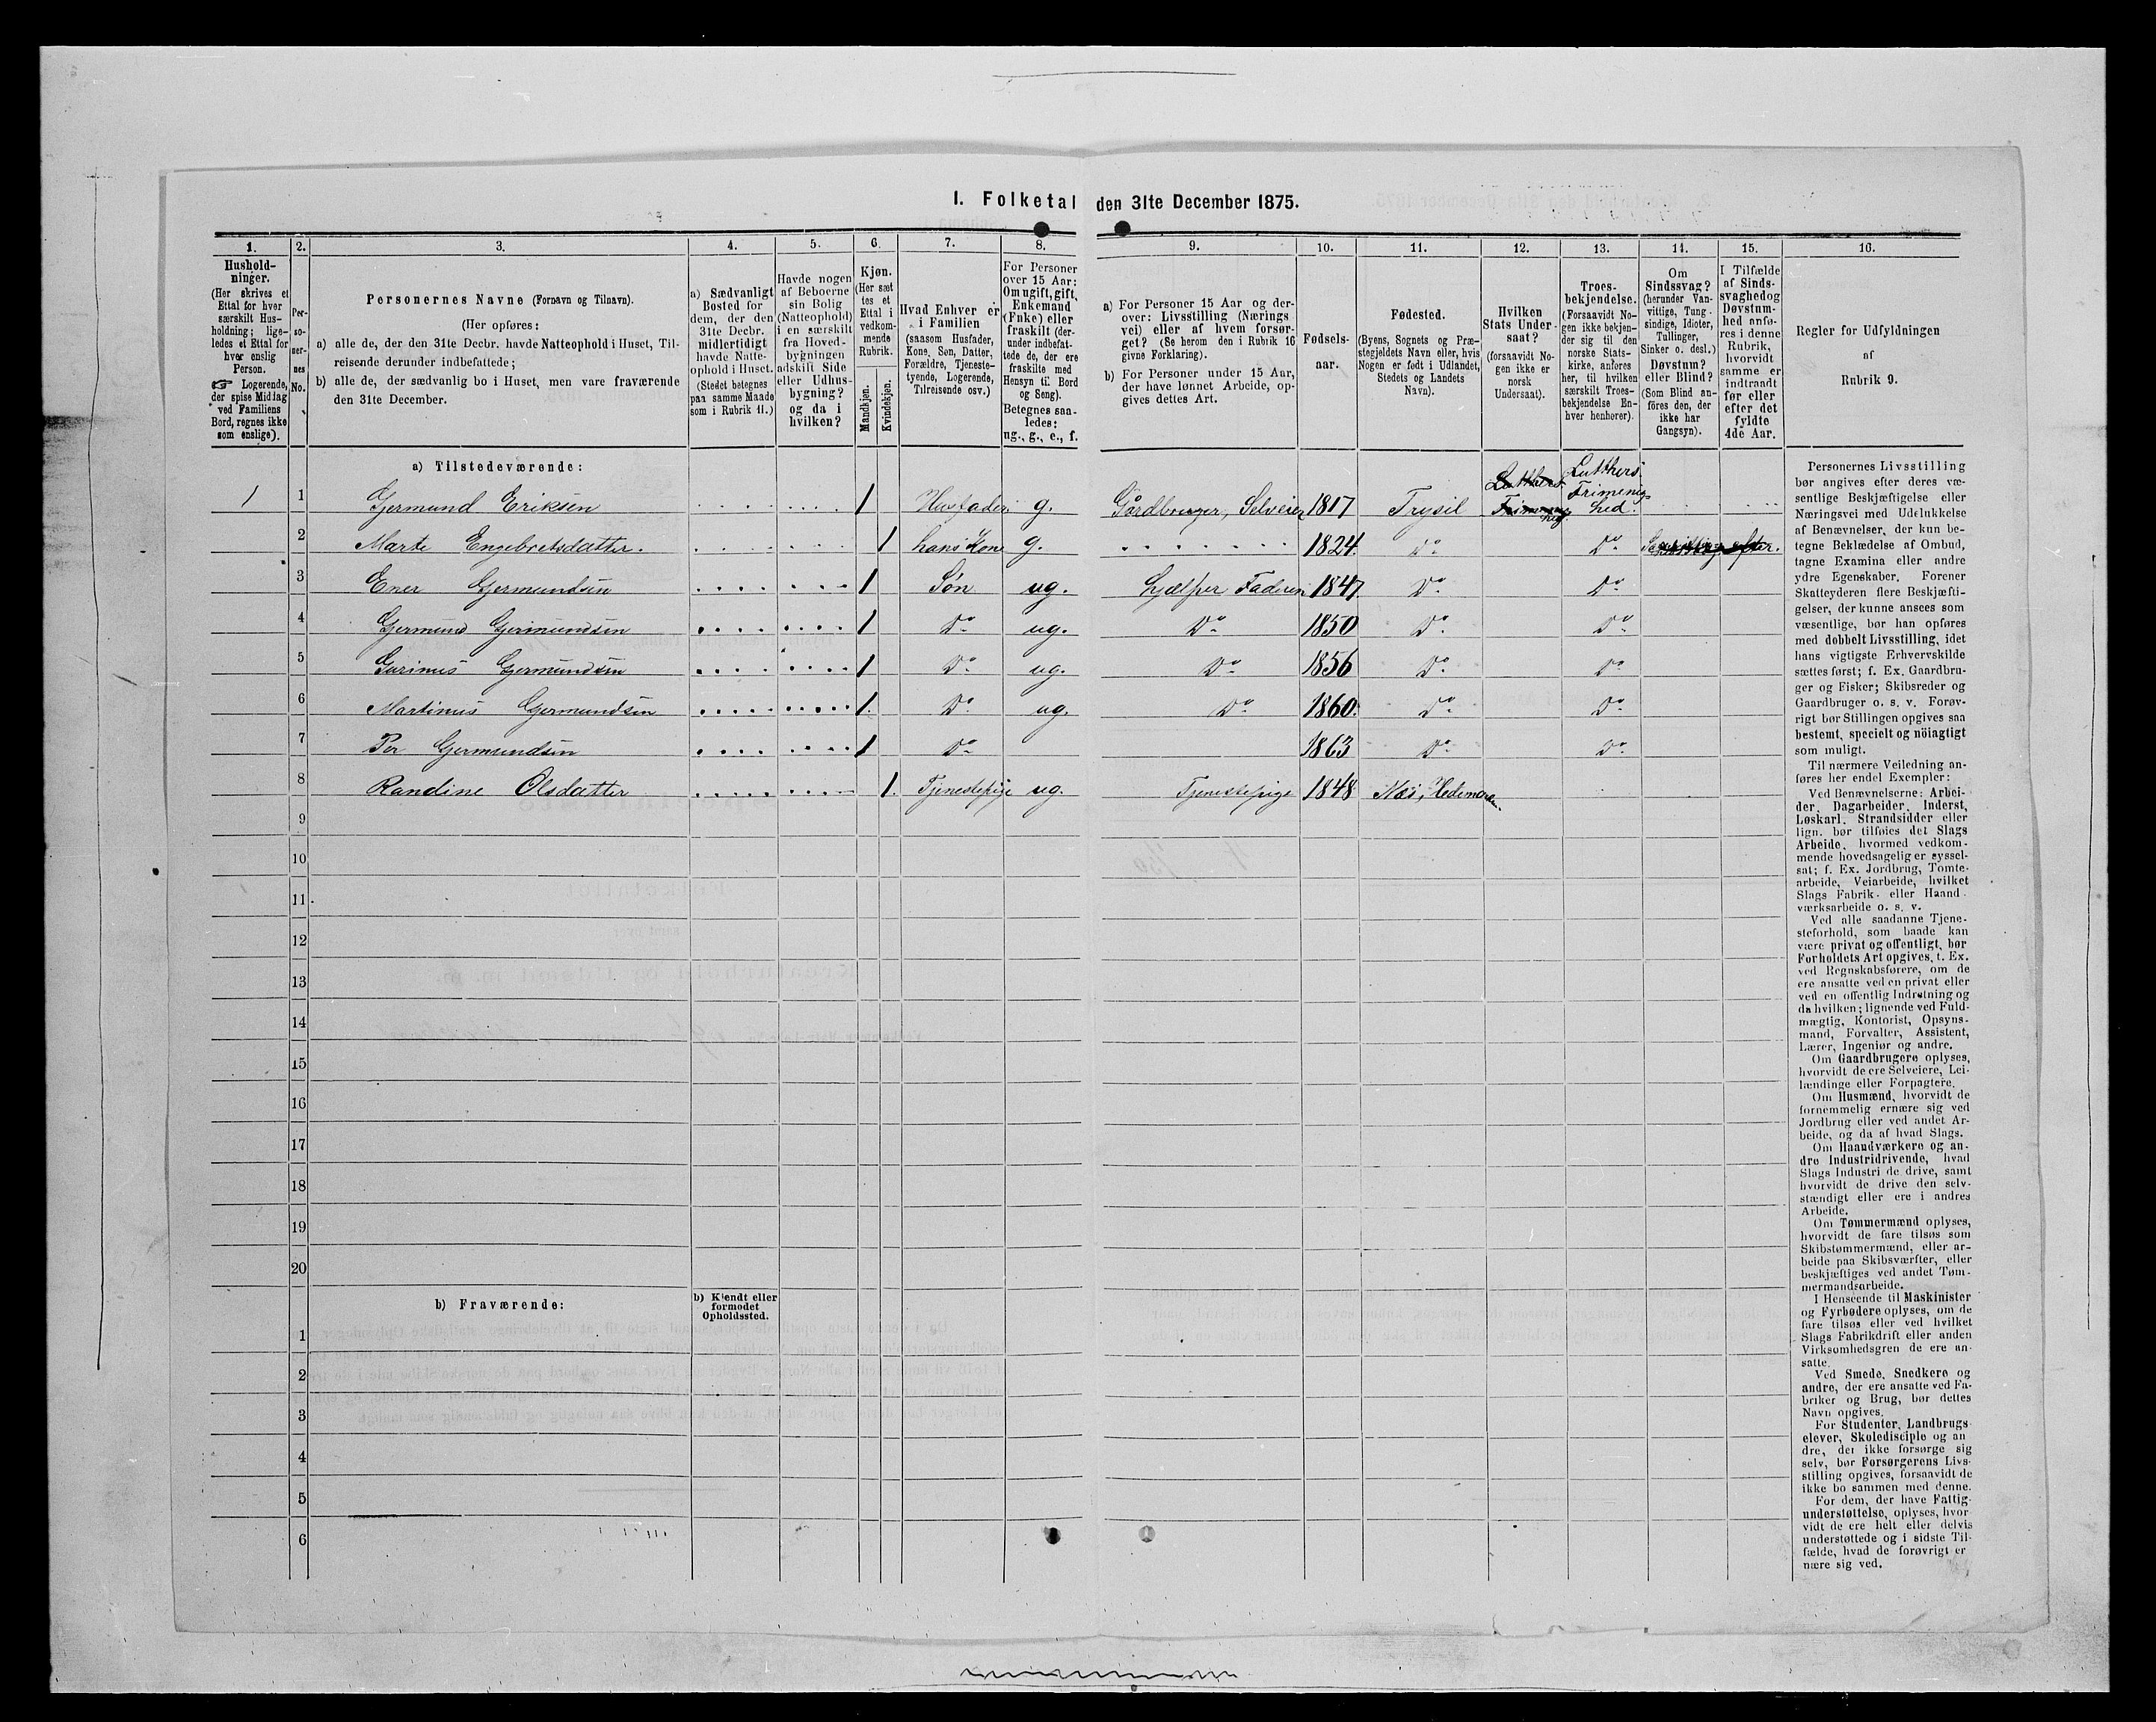 I. Folketal den 31te December 1875.
1.
2.
3.
4.
5.
6.
7.
8.
9.
10.
11.
12.
13.
14.
15.
16.
Hushold-
ninger.
(Her skrives et
Ettal for hver
særskilt Hus-
holdning; lige-
ledes et Ettal for
hver enslig
Person.
☞ Logerende,
der spise Middag
ved Familiens
Bord, regnes ikke
som enslige).
Per-
so-
ner-
nes
No.
Personernes Navne (Fornavn og Tilnavn).
(Her opføres:
a) alle de, der den 31te Decbr. havde Natteophold i Huset, Til-
reisende derunder indbefattede;
b) alle de, der sædvanlig bo i Huset, men vare fraværende
den 31te December.
a) Sædvanligt
Bosted for
dem, der den
31te Decbr.
midlertidigt
havde Natte-
ophold i Huset.
(Stedet betegnes
paa samme Maade
som i Rubrik 11.)
Havde nogen
af Beboerne
sin Bolig
(Natteophold)
i en særskilt
fra Hoved-
bygningen
adskilt Side
eller Udhus-
bygning?
og da i
hvilken?
Kjøn.
(Her sæt
tes et
Ettal i
vedkom-
mende
Rubrik.
Mandkjøn.
Kvindekjøn.
Hvad Enhver er
i Familien
(saasom Husfader,
Kone, Søn, Datter,
Forældre, Tjeneste-
tyende, Logerende,
Tilreisende osv.)
For Personer
over 15 Aar:
Om ugift, gift,
Enkemand
(Enke) eller
fraskilt (der-
under indbefat-
tede de, der ere
fraskilte med
Hensyn til Bord
og Seng).
Betegnes saa-
ledes:
ug., g., e., f.
a) For Personer 15 Aar og der-
over: Livsstilling (Nærings
vei) eller af hvem forsør-
get? (Se herom den i Rubrik 16
givne Forklaring).
b) For Personer under 15 Aar,
der have lønnet Arbeide, op-
gives dettes Art.
Fødsels-
aar.
Fødested.
(Byens, Sognets og Præ-
stegjeldets Navn eller, hvis
Nogen er født i Udlandet,
Stedets og Landets
Navn).
Hvilken
Stats Under-
saat?
(forsaavidt No-
gen ikke er
norsk
Undersaat).
Troes-
bekjendelse.
(Forsaavidt No-
gen ikke bekjen-
der sig til den
norske Stats-
kirke, anføres
her, til hvilken
særskilt Troes-
bekjendelse En-
hver henhører).
Om
Sindssvag?
(herunder Van-
vittige, Tung-
sindige, Idioter,
Tullinger,
Sinker o. desl.)
Døvstum?
eller Blind?
(Som Blind an-
føres den, der
ikke har
Gangsyn).
I Tilfælde
af Sinds-
svaghed og
Døvstum-
hed anfø-
res i denne
Rubrik,
hvorvidt
samme er
indtraadt
før eller
efter det
fyldte
4de Aar.
Regler for Udfyldningen
af
Rubrik 9.
a) Tilstedeværende:
1 1 Gjermund Eriksen 1 Husfader g. Gårdbruger, Selveier 1817 Trysil Luthers Frimenig- Luthers Frimenig- hed.
2 Marte Engebretsdatter. 1 hans Kone g. 1824 Do Do efter.
3 Ener Gjermundsen 1 Søn ug. hjælper Faderen 1847 Do Do
4 Gjermund Gjermundsen 1 Do ug. Do 1850 Do Do
5 Gurinus Gjermundsen 1 Do ug. Do 1856 Do Do
6 Martinus Gjermundsen 1 Do ug. Do 1860 Do Do
7 Per Gjermundsen 1 Do 1863 Do Do
8 Randine Olsdatter 1 Tjenestepige ug. Tjenestepige 1848 Næs, Hedemarken
9
10
11
12
13
14
15
16
17
18
19
20
b) Fraværende:
b) Kjendt eller
formodet
Opholdssted.
1
2
3
4
5
6
Personernes Livsstilling
bør angives efter deres væ-
sentlige Beskjæftigelse eller
Næringsvei med Udelukkelse
af Benævnelser, der kun be-
tegne Beklædelse af Ombud,
tagne Examina eller andre
ydre Egenskaber. Forener
Skatteyderen flere Beskjæfti-
gelser, der kunne ansees som
væsentlige, bør han opføres
med dobbelt Livsstilling, idet
hans vigtigste Erhvervskilde
sættes først; f. Ex. Gaardbru-
ger og Fisker; Skibsreder og
Gaardbruger o. s. v. Forøv-
rigt bør Stillingen opgives saa
bestemt, specielt og nöiagtigt
som muligt.
Til nærmere Veiledning an-
føres her endel Exempler:
Ved Benævnelserne: Arbei-
der, Dagarbeider, Inderst,
Løskarl, Strandsidder eller
lign. bør tilføies det Slags
Arbeide, hvormed vedkom-
mende hovedsagelig er syssel-
sat; f. Ex. Jordbrug, Tomte-
arbeide, Veiarbeide, hvilket
Slags Fabrik- eller Haand-
værksarbeide o. s. v.
Ved alle saadanne Tjene-
steforhold, som baade kan
være privat og offentligt, bør
Forholdets Art opgives, f. Ex.
ved Regnskabsførere, om de
ere ansatte ved en privat eller
ved en offentlig Indretning og
da hvilken; lignende ved Fuld-
mægtig, Kontorist, Opsyns-
mand, Forvalter, Assistent,
Lærer, Ingeniør og andre.
Om Gaardbrugere oplyses,
hvorvidt de ere Selveiere, Lei-
lændinge eller Forpagtere.
Om Husmænd, hvorvidt de
fornemmelig ernære sig ved
Jordbrug eller ved andet Ar-
beide, og da af hvad Slags.
Om Haandværkere og an-
dre Industridrivende, hvad
Slags Industri de drive, samt
hvorvidt de drive den selv-
stændigt eller ere i andres
Arbeide.
Om Tømmermænd oplyses,
hvorvidt de fare tilsøs som
Skibstømmermænd, eller ar-
beide paa Skibsværfter, eller
beskjæftiges ved andet Tøm-
mermandsarbeide.
I Henseende til Maskinister
og Fyrbødere oplyses, om de
fare tilsøs eller ved hvilket
Slags Fabrikdrift eller anden
Virksomhedsgren de ere an-
satte.
Ved Smede, Snedkere og
andre, der ere ansatte ved Fa-
briker og Brug, bør dettes
Navn opgives.
For Studenter, Landbrugs-
elever, Skoledisciple og an
dre, der ikke forsørge sig
selv, bør Forsørgerens Livs-
stilling opgives, forsaavidt de
ikke bo sammen med denne.
For dem, der have Fattig-
understøttelse, oplyses, hvor-
vidt de ere helt eller delvis
understøttede og i sidste Til-
fælde, hvad de forøvrigt er-
nære sig ved.